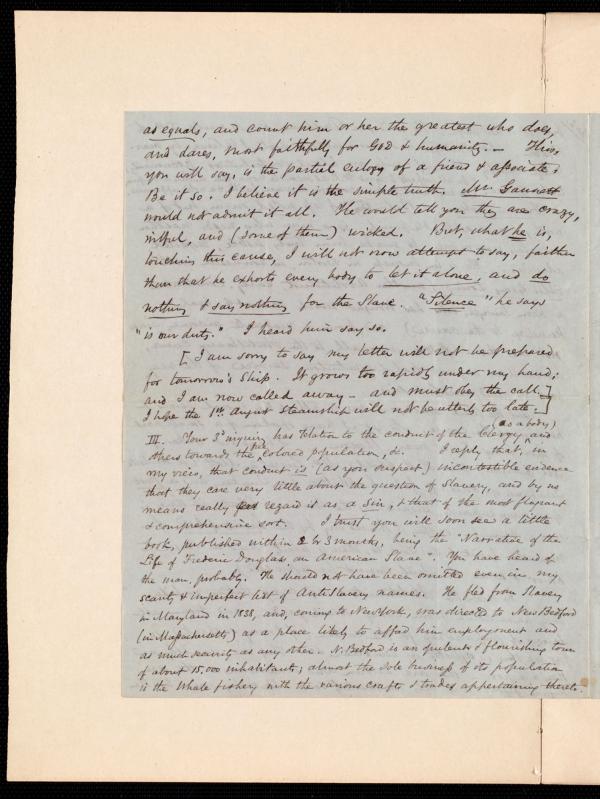 as equals, and count him or her the greatest who does,
and dares, most faithfully for God & humanity. — This,
you will say, is the partial eulogy of a friend & associate.
Be it so. I believe it is the simple truth. Mr. Gannett
would not admit it all. He would tell you they are crazy,
wilful, and (some of them) wicked. But, what he is,
touching this cause, I will not now attempt to say, farther
than that he exhorts every body to let it alone, and do
nothing & say nothing for the Slave. "Silence" he says
"is our duty." I heard him say so.
[I am sorry to say my letter will not be prepared
for tomorrow's Ship. It grows too rapidly under my hand;
and I am now called away – and must obey the call.
I hope the 1st August Steamship will not be utterly too late.]
(as a body)
III. Your 3d inquiry has relation to the conduct of the Clergy, and
others towards the colored population, &c. I reply that, in
my view, that conduct is (as you suspect) incontestible evidence
that they care very little about the question of Slavery, and by no
means really regard it as a Sin, & that of the most flagrant
& comprehensive sort. I trust you will soon see a little
book, published within 2 or 3 months, being the "Narrative of the
Life of Frederic Douglass, an American Slave". You have heard of
the man, probably. He should not have been omitted even in my
scanty & imperfect list of AntiSlavery names. He fled from Slavery
in Maryland in 1838, and, coming to New York, was directed to New Bedford
(in Massachusetts) as a place likely to afford him employment and
as much security as any other. N. Bedford is an opulent & flourishing town
of about 15,000 inhabitants; almost the sole business of its population
is the Whale fishery, with the various crafts & trades appertaining thereto.